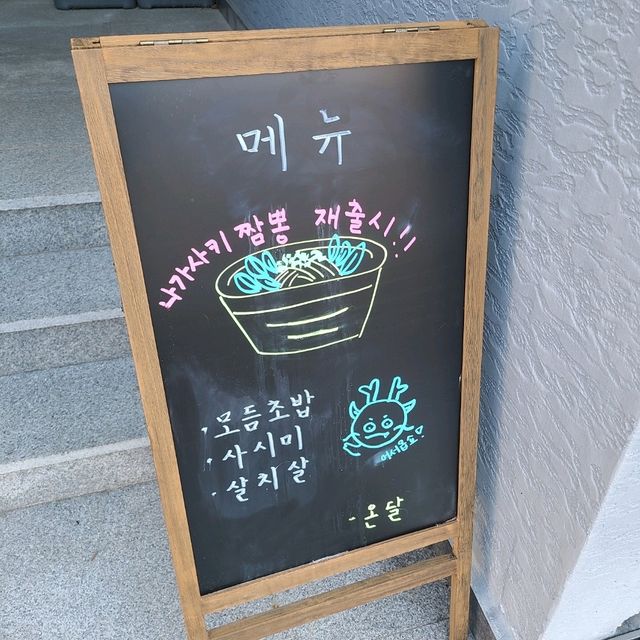 메뉴
나가사키 짬뽕 재출시!!
· 모듬초밥
· 사시미
· 살치살
어서옵쇼♡
- 온달